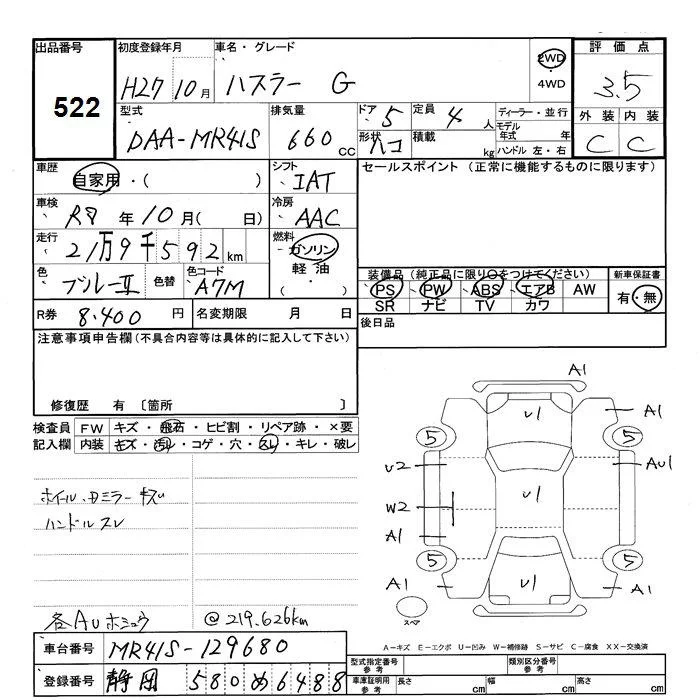 出品番号
522
初度登録年月
H27 10月
車名・グレード
ハスラー G
2WD
・
4WD
評価点
3.5
型式
DAA-MR41S
排気量
660 cc
ドア 5
定員 4 人
形状 ハコ
積載 kg
ディーラー・並行
モデル年式 年
ハンドル 左・右
外装 内装
C C
車歴
自家用・( )
シフト
IAT
セールスポイント (正常に機能するものに限ります)
車検
年 10月( 日)
冷房
AAC
走行
21万9千592km
燃料
ガソリン
・
軽油
( ・ )
色
ブルーⅡ
色替
色コード
A7M
装備品 (純正品に限り○をつけてください)
PS PW ABS エアB AW
SR ナビ TV カワ
新車保証書
有・無
R券 8.400 円
名変期限 月 日
後日品
注意事項申告欄 (不具合内容等は具体的に記入して下さい)
修復歴 有 〔箇所 〕
検査員記入欄
FW キズ・飛石・ヒビ割・リペア跡・×要
内装 モズ・汚レ・コゲ・穴・スレ・キレ・破レ
ホイル、Dミラー キズ
ハンドルスレ
各AUホシュウ @219.626km
A1
U1
A1
5 5
U2 AU1
W2 U1
A1
5 5
A1 U1 A1
スペア
A-キズ E-エクボ U-凹み W-補修跡 S-サビ C-腐食 XX-交換済
車台番号 MR41S-129680
登録番号 静岡 580 め 6488
型式指定番号 参考
類別区分番号 参考
車庫証明用 参考
長さ cm 幅 cm 高さ cm